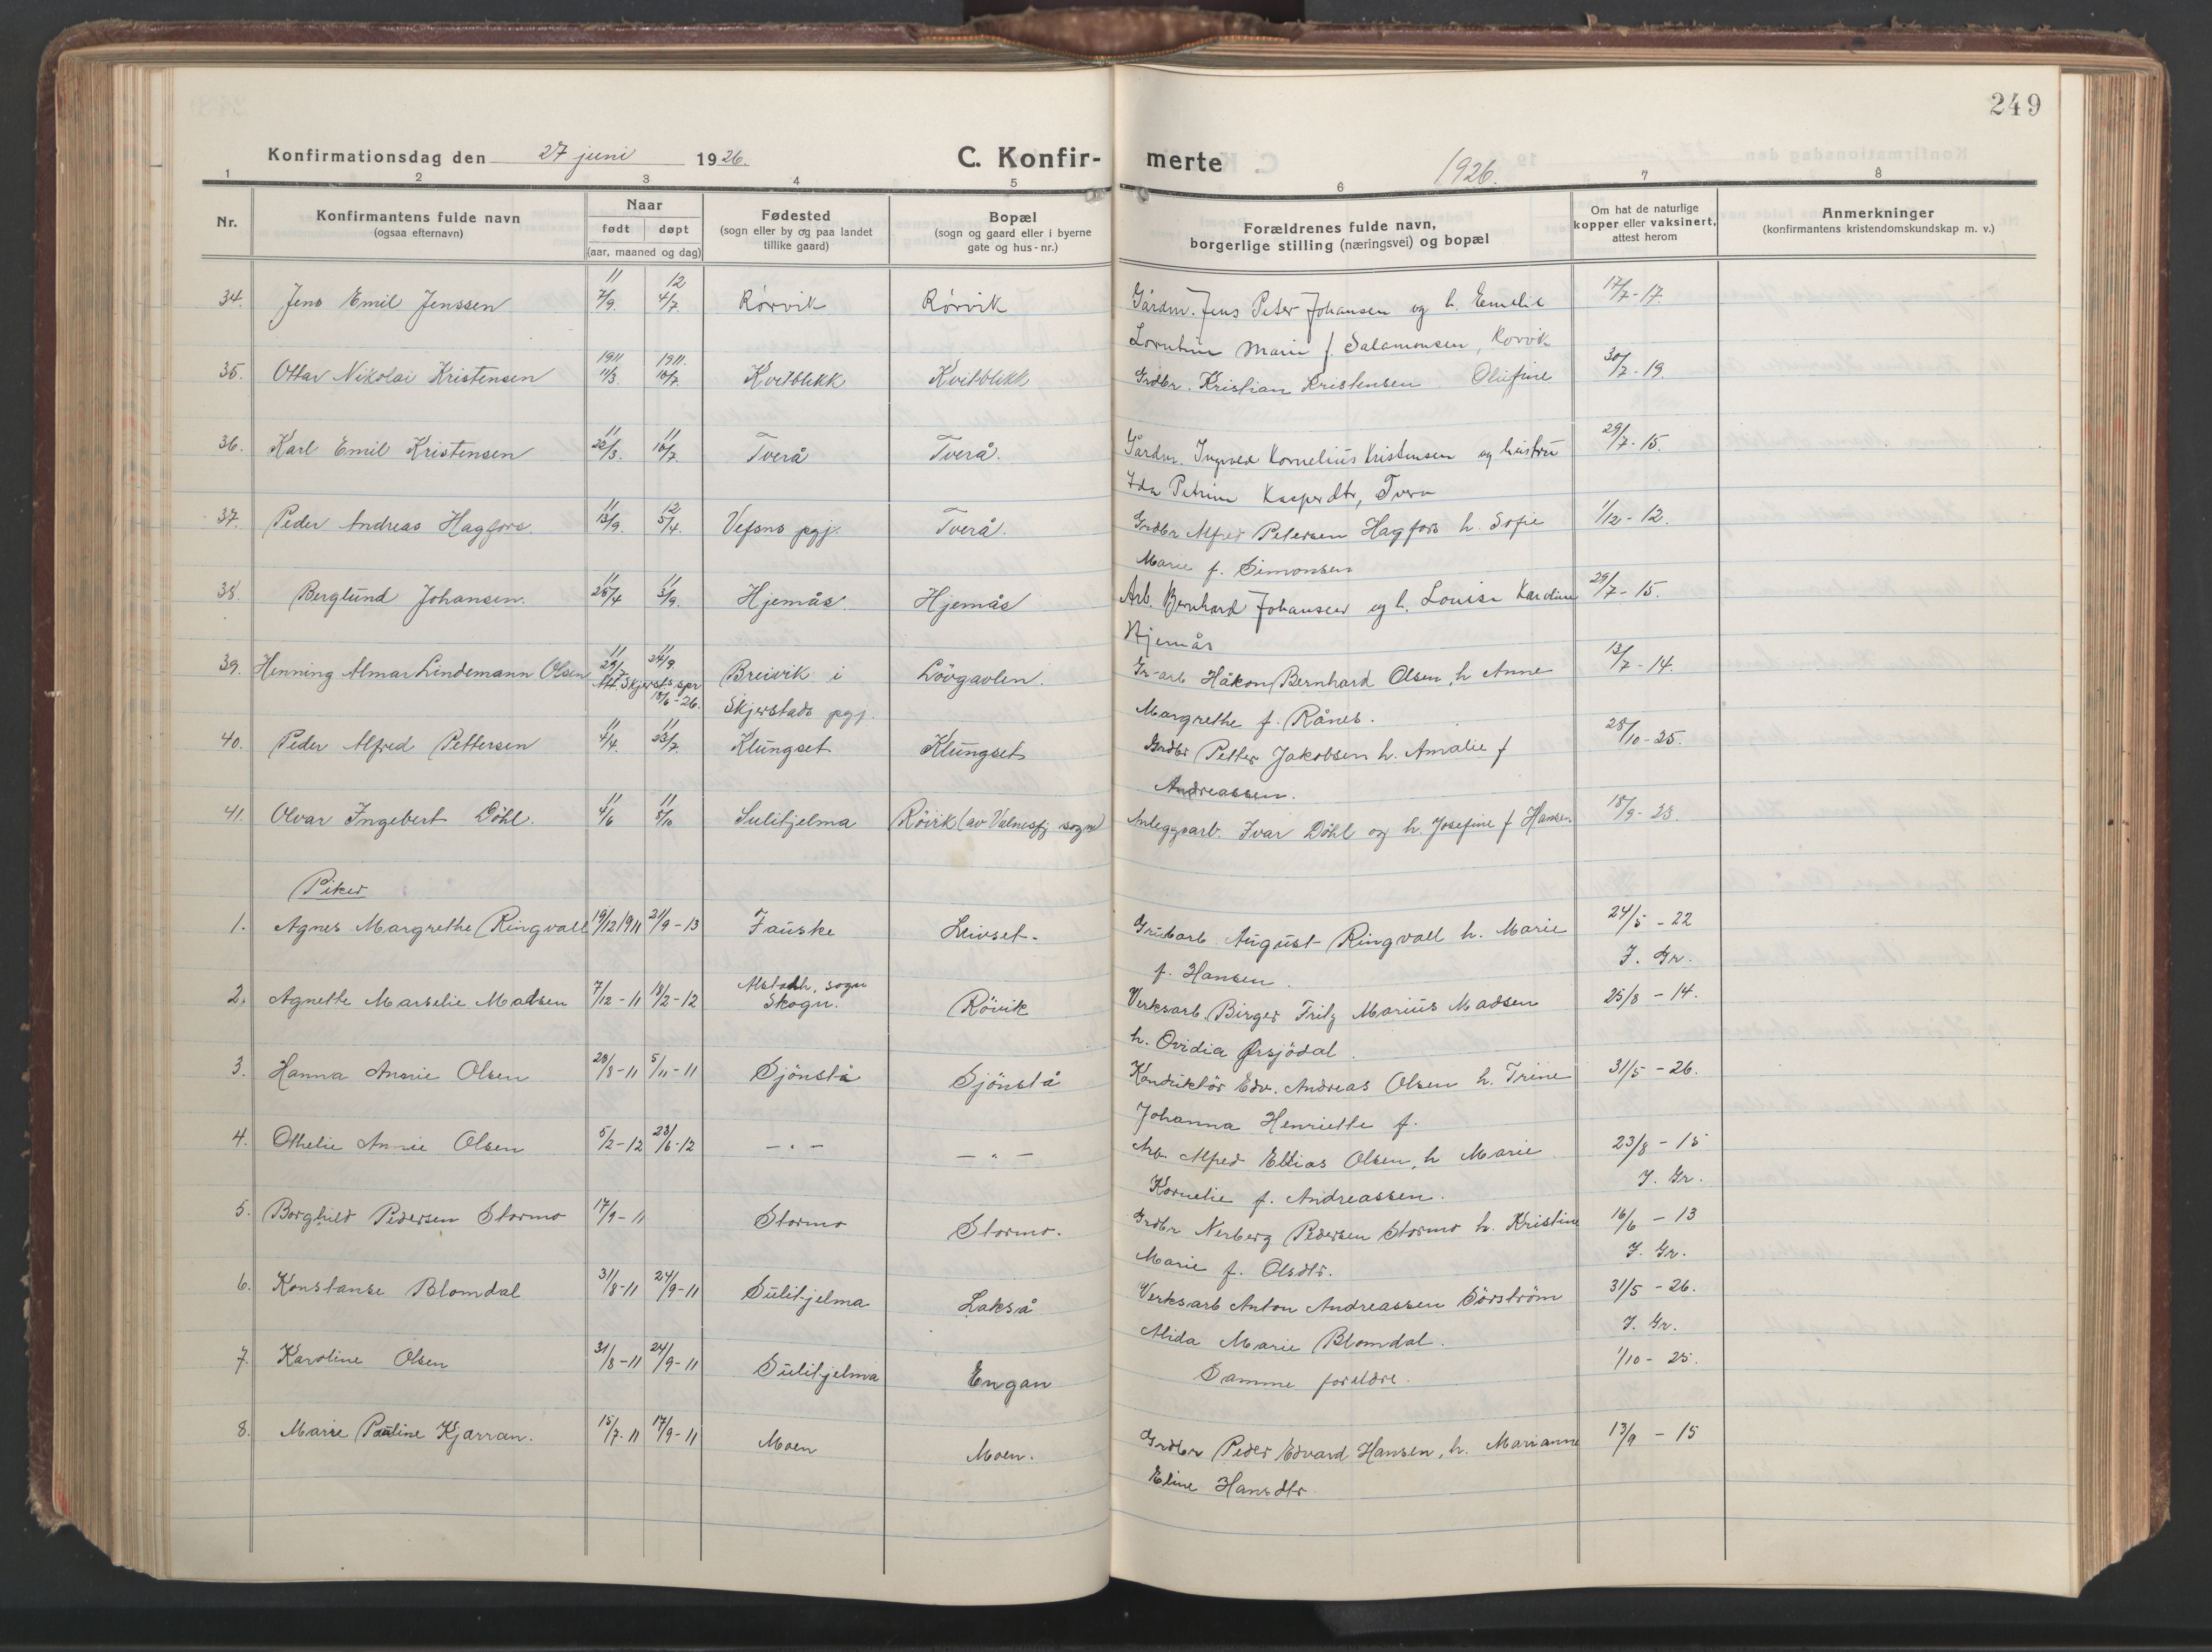 249
Konfirmationsdag den 27 juni 1926.
C. Konfir-
merte
1926.
1 2 3 4 5 6 7 8
Nr.
Konfirmantens fulde navn
(ogsaa efternavn)
Naar
født døpt
(aar, maaned og dag)
Fødested
(sogn eller by og paa landet
tillike gaard)
Bopæl
(sogn og gaard eller i byerne
gate og hus-nr.)
Forældrenes fulde navn,
borgerlige stilling (næringsvei) og bopæl
Om hat de naturlige
kopper eller vaksinert,
attest herom
Anmerkninger
(konfirmantens kristendomskundskap m. v.)
11 12
34. Jens Emil Jenssen 7/9. 4/7. Rørvik Rørvik Gårdm. Jens Peter Johansen og h. Emelie 17/7-17.
Marie f. Salamonsen, Rørvik
1911 1911.
35. Ottar Nikolai Kristensen 11/3. 16/7. Kvitblikk Kvitblikk Grdbr. Kristian Kristensen Oliefine 30/7-19.
11 11
36. Karl Emil Kristensen 22/3. 16/7. Tverå Tverå. Gårdm. Ingvald Kornelius Kristensen og hustru 29/7-15.
Ida Petrine Kasperdtr, Tverå
11 12
37. Peder Andreas Hagfors. 13/9. 5/4. Vefsns pgj. Tverå. Grdbr Alfred Petersen Hagfors h. Sofie 1/12-12.
Marie f. Simonsen
11 11
38. Berglund Johansen. 25/4 3/9. Hjemås. Hjemås Arb. Bernhard Johansen og h. Louise Karoline 29/7-15.
Hjemås
11 11
39. Henning Almar Lindemann Olsen 29/7 24/9. Breivik i Løvgavlen. Gr-arb Håkon Bernhard Olsen, h Anne 13/7-14.
Att. Skjerst.s spr 18/6-26. Skjerstads pgj. Margrethe f. Rånes.
11 11
40. Peder Alfred Pettersen 4/4. 23/7. Klungset Klungset Grdbr Petter Jakobsen h. Amalie f 28/10-25.
Andreassen.
11 11
41. Olvar Ingebert Døhl. 4/6 8/10 Sulitjelma Røvik (av Valnesfj sogn) Anleggsarb. Ivar Døhl og h. Josefine f Hansen 18/9-23.
Piker
1. Agnes Margrethe Ringvall 19/12 1911 21/9-13 Fauske Leivset- Grubarb. August Ringvall h. Marie 24/5-22
f. Hansen. J. Gr.
2. Agnette Marselie Madsen 7/12-11 18/2-12 Alstadh. sogn
Skogn. Røvik Verksarb. Birger Fritz Marius Madsen 25/8-14.
h. Ovidia Ørsjødal.
3. Hanna Annie Olsen 28/8-11 5/11-11 Sjønstå Sjønstå Konduktør Edv. Andreas Olsen h. Trine 31/5-26.
Johanna Henriette f.
4. Othelie Annie Olsen 5/2-12 23/6-12 - " - - " - Arb. Alfred Ellias Olsen, h Marie 23/8-15
Kornelie f. Andreassen. J. Gr.
5. Borghild Pedersen Stormo 17/9-11 Stormo Stormo. Grdbr Nerberg Pedersen Stormo h. Kristine 16/6-13
Marie f. Olsdtr. J. Gr.
6. Konstanse Blomdal 31/8-11 24/9-11 Sulitjelma Lakså Verksarb Anton Andreassen Sørstrøm 31/5-26.
Alida Marie Blomdal. J. Gr.
7. Karoline Olsen 31/8-11 24/9-11 Sulitjelma Engan 1/10-25.
Samme foreldre.
8. Marie Pauline Kjarran. 15/7-11 17/9-11 Moen Moen. Grdbr Peder Edvard Hansen, h. Marianne 13/9-15
Eline Hansdtr.